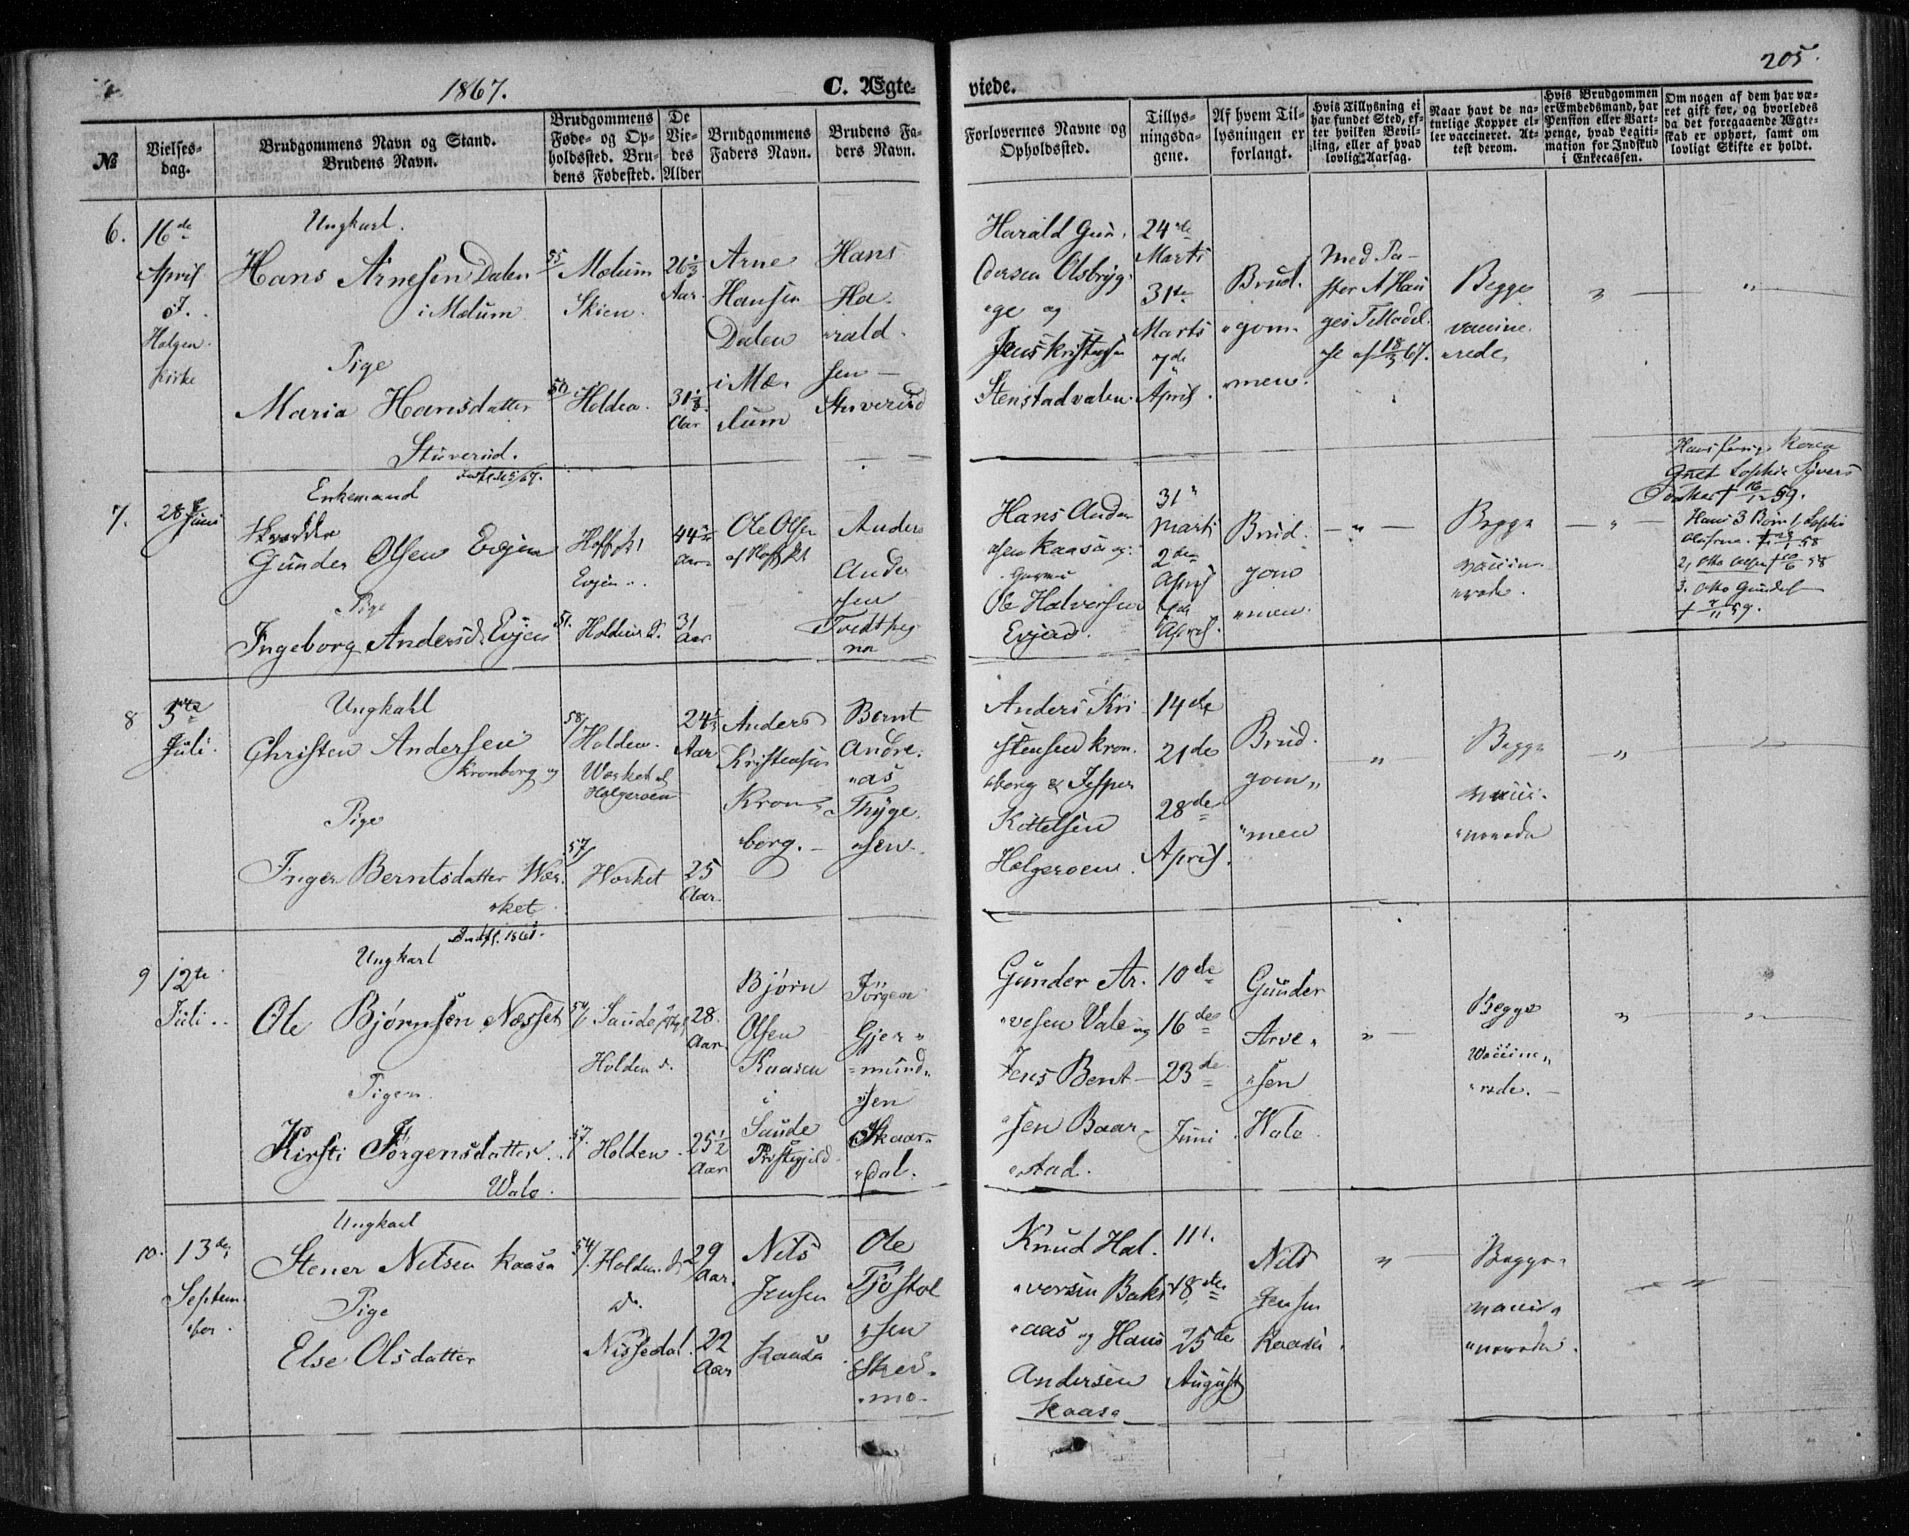 1867.
C. Ægte-
viede.
205.
№
Vielses-
dag.
Brudgommens Navn og Stand.
Brudens Navn.
Brudgommens
Føde- og Op-
holdssted. Bru-
dens Fødested.
De
Vie-
des
Alder
Brudgommens
Faders Navn.
Brudens Fa-
ders Navn.
Forlovernes Navne og
Opholdssted.
Tillys-
ningsda-
gene.
Af hvem Til-
lysningen er
forlangt.
Hvis Tillysning ei
har fundet Sted, ef-
ter hvilken Bevil-
ling, eller af hvad
lovlig Aarsag.
Naar havt de na-
turlige Kopper el-
ler vaccineret. At-
test derom.
Hvis Brudgommen
er Embedsmand, har
Pension eller Vart-
penge, hvad Legiti-
mation for Indskud
i Enkecassen.
Om nogen af dem har væ-
ret gift før, og hvorledes
da det foregaaende Ægte-
skab er ophørt, samt om
lovligt Skifte er holdt.
6.
16de
April
Holgen
kirke
Ungkarl.
Hans Arnesen Dalen
i Mælum
Pige
Maria Hansdatter
Stuverud.
55
Mælum
Skien.
Holden.
26
Aar.
31
Aar
Arne
Hansen
Dalen
i Mæ-
lum
Hans
Ha-
rald
sen
Stuverud
Harald Gun-
dersen Olsbryg-
ge og
Jens Kristensen
Stenstadvalen.
24de
Marts
31te
Marts
7de
April.
Brud-
gom-
men.
Med Pa-
18/3 67.
Begge
vaccine
rede
7.
28
Juni
Enkemand
Skrædder
Gunder Olsen Evjen
Pige
Ingeborg Andersd. Evjen
Evjen
51.
Holden
44
Aar
31
Aar
Ole Olsen
Anders
Ander
sen
Hans Ander
sen Kaasa og
Ole Halvorsen
Evjen.
31
Marts
2den
April
April.
Brud
gom
men.
Begge
vaccin-
erede.
Hans forrige Kone
Gret Sophie Syvers
Datter † 16/12 59.
Hans 3 Børn 1, Sophie
3. Otto Gundel
† 7/11 59.
8
5te
Juli.
Ungkarl
Christen Andersen
Kronborg og
Pige
Inger Berntsdatter Vær-
ket
58/
Holden.
Værket og
Holgeroen
57/
Værket
24½
Aar
25
Aar.
Anders
Kristensen
Kron-
borg.
Bernt
Andre-
as
Thyge-
sen
Anders Kri
stensen Kron-
borg & Jesper
Kittelsen
Holgeroen.
14de
21de
28de
April.
Brud-
gom
men
Begge
vacci-
nerede
9
12te
Juli.
Ungkarl
Ole Bjørnsen Næsset
Pigen
Kirsti Jørgensdatter
Vale.
54/
Saude
Holden
57.
Holden
28.
Aar.
25½
Aar
Bjørn
Olsen
Kaasen
i
Saude
Præstegjeld
Jørgen
Gjer-
mund-
sen
Skaar-
dal.
Gunder Ar-
vesen Vale og
Jens Bent-
sen Baar-
stad.
10de
16de
23de
Juni
Gunder
Arve-
sen
Vale
Begge
Vaccine-
rede.
10.
13de
Septem-
ber.
Ungkarl
Stener Nilsen Kaasa
Pige
Else Olsdatter
54/
Holden
Nissedal
29
Aar.
22
Aar
Nils
Jensen
Kaasa
Ole
Tjøstol
sen
Sker-
mo.
Knud Hal-
vorsen Bak-
aas og Hans
Andersen
Kaasa
11.
18de
25de
August
Nils
Jensen
Kaasa
Begge
vacci-
nerede.